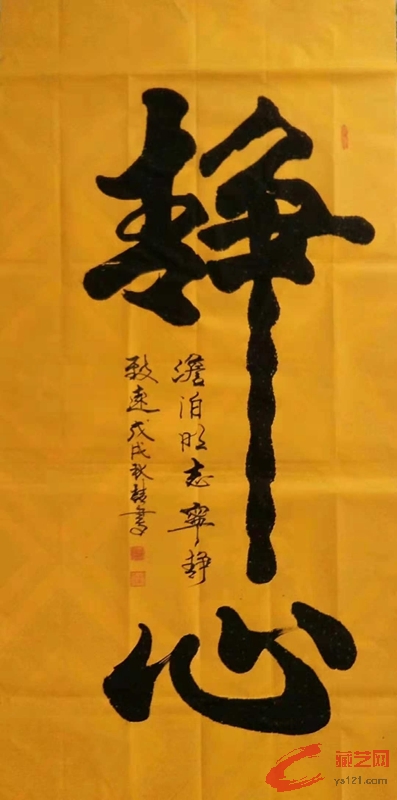 静心
澹泊明志寧静
致远戊戌秋桂書
藏艺网
ys121.com